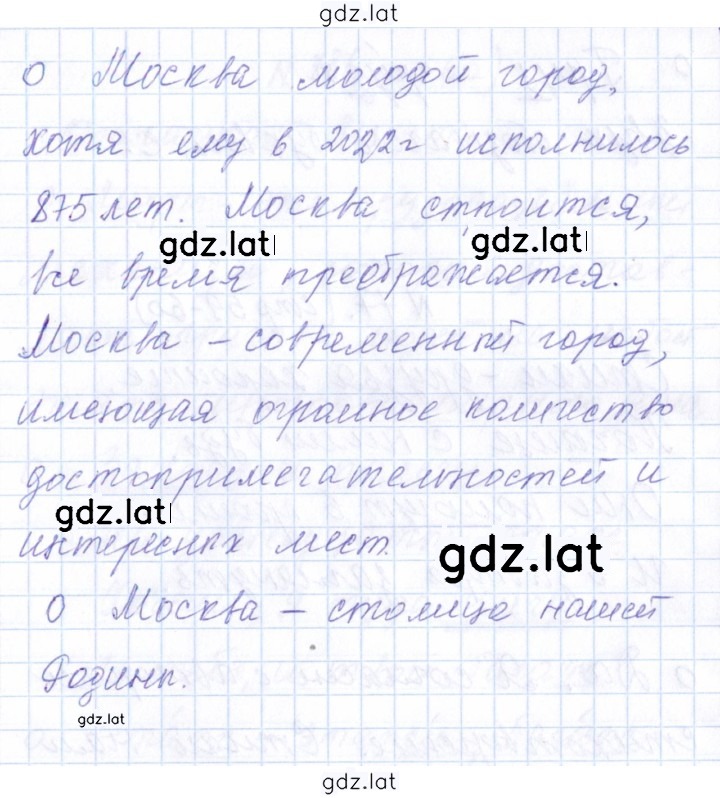 gdz.lat
О Москва молодой город,
хотя ему в 2022г исполнилось
875 лет. Москва строится,
gdz.lat gdz.lat
все время преображается.
Москва – современный город,
имеющая огромное количество
достопримечательностей и
gdz.lat
интересных мест.
gdz.lat
О Москва – столица нашей
Родины.
gdz.lat
gdz.lat